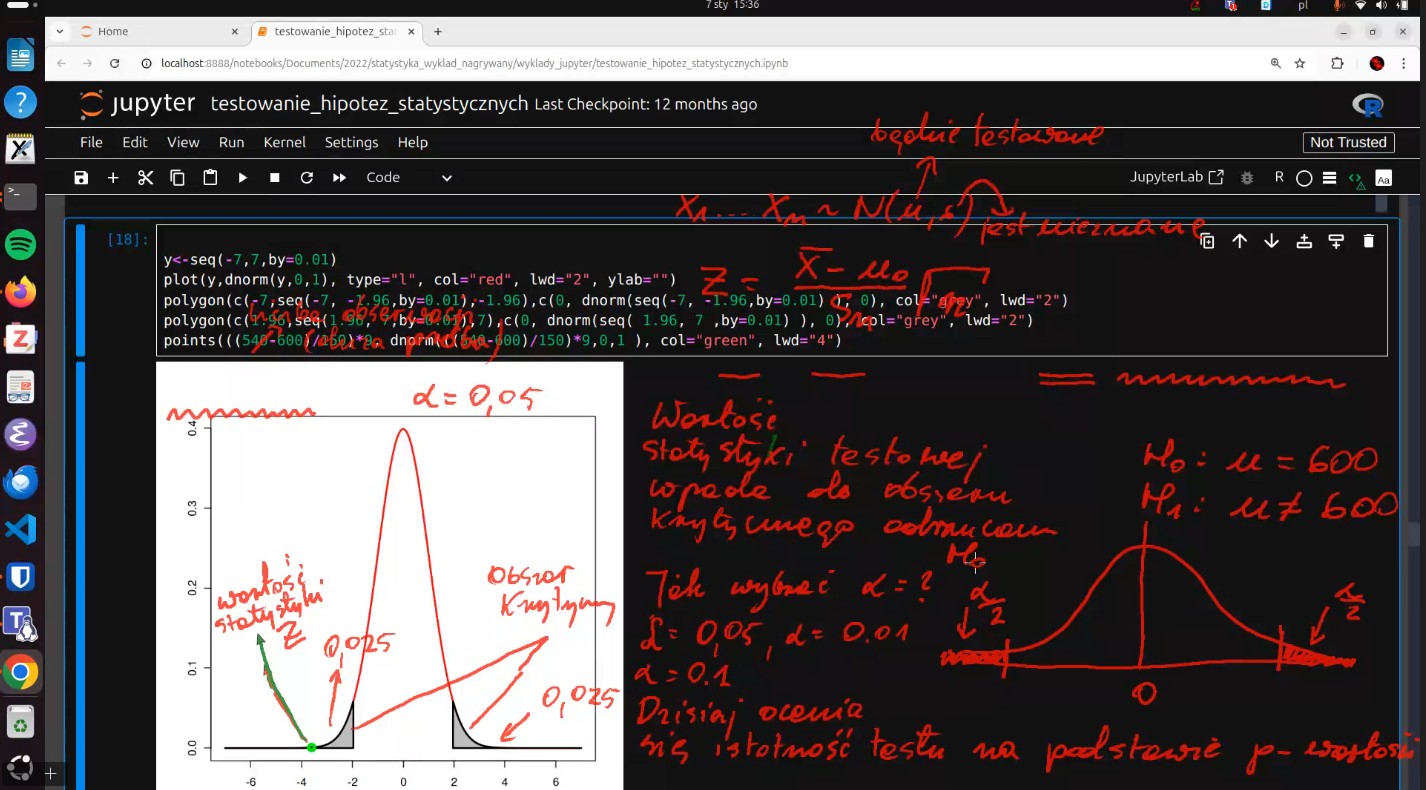 7 sty 15:36
pl
Home
testowanie_hipotez_sta
localhost:8888/notebooks/Documents/2022/statystyka_wyklad_nagrywany/wyklady_jupyter/testowanie_hipotez_statystycznych.ipynb
jupyter testowanie_hipotez_statystycznych Last Checkpoint: 12 months ago
File Edit View Run Kernel Settings Help
Not Trusted
będzie testowane
Code
JupyterLab R
X1 ... Xn ~ N(μ, σ)
jest nieznane
[18]:
y<-seq(-7,7,by=0.01)
plot(y,dnorm(y,0,1), type="l", col="red", lwd="2", ylab="")
polygon(c(-7,seq(-7, -1.96,by=0.01),-1.96),c(0, dnorm(seq(-7, -1.96,by=0.01) ), 0), col="grey", lwd="2")
polygon(c(1.96,seq(1.96, 7,by=0.01),7),c(0, dnorm(seq( 1.96, 7 ,by=0.01) ), 0), col="grey", lwd="2")
points(((540-600)/150)*9, dnorm(((540-600)/150)*9,0,1 ), col="green", lwd="4")
Z = X̄ - μ0
α = 0,05
0.4
0.3
0.2
0.1
0.0
-6 -4 -2 0 2 4 6
wartość
statystyki
Z
0,025
Obszar
Krytyczny
0,025
Wartość
statystyki testowej
wpada do obszaru
Krytycznego odrzucam
H0
H0 : μ = 600
H1 : μ ≠ 600
Jak wybrać α = ?
α = 0,05, α = 0.01
α = 0.1
Dzisiaj ocenia
się istotność testu na podstawie p-wartości
α/2
α/2
0